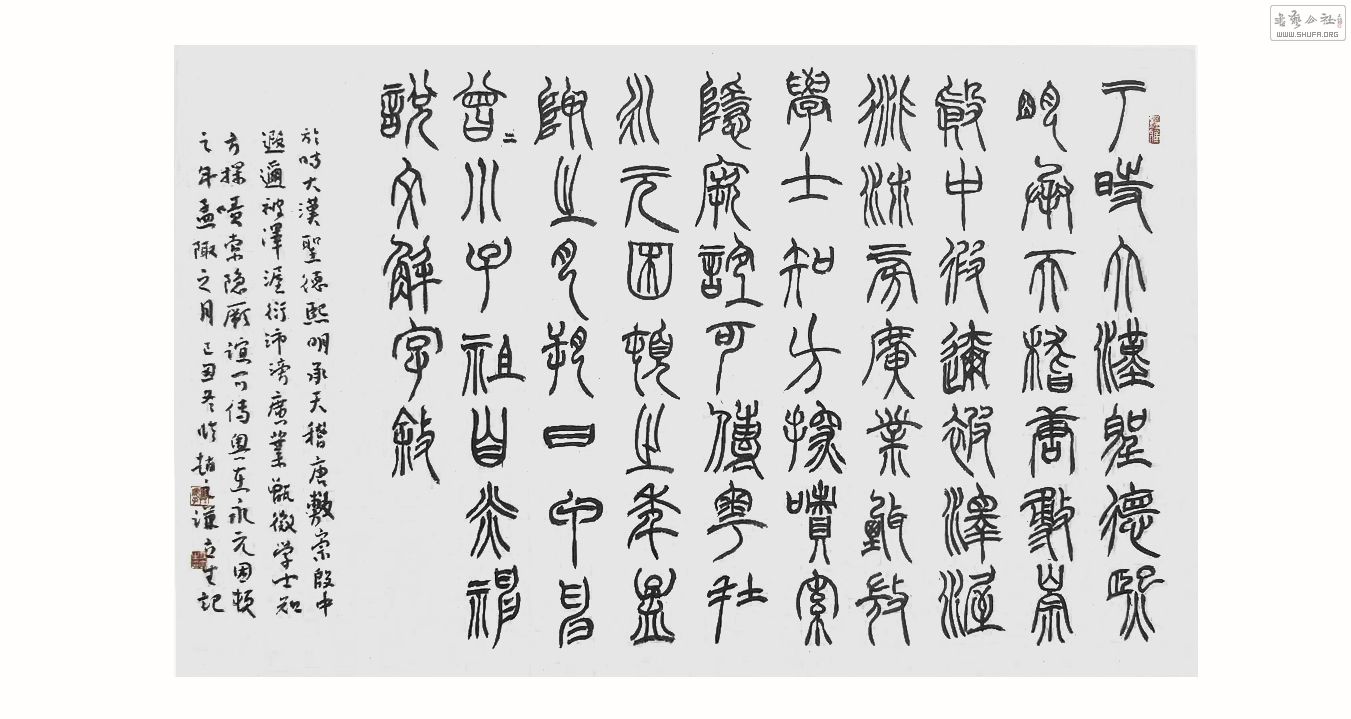 于時大漢聖德熙
明承天稽唐敷崇
殷中遐邇被澤渥
衍沛滂廣業甄微
學士知方探嘖索
隱厥誼可傳粵在
永元困頓之年孟
陬之月朔日甲申
曾二小子祖自炎神
說文解字敘
於時大漢聖德熙明承天稽唐敷崇殷中
遐邇被澤渥衍沛滂廣業甄微学士知
方探嘖索隐厥誼可傳粵在永元困頓
之年孟陬之月 己丑冬临 趙 谦 立生記
WWW.SHUFA.ORG